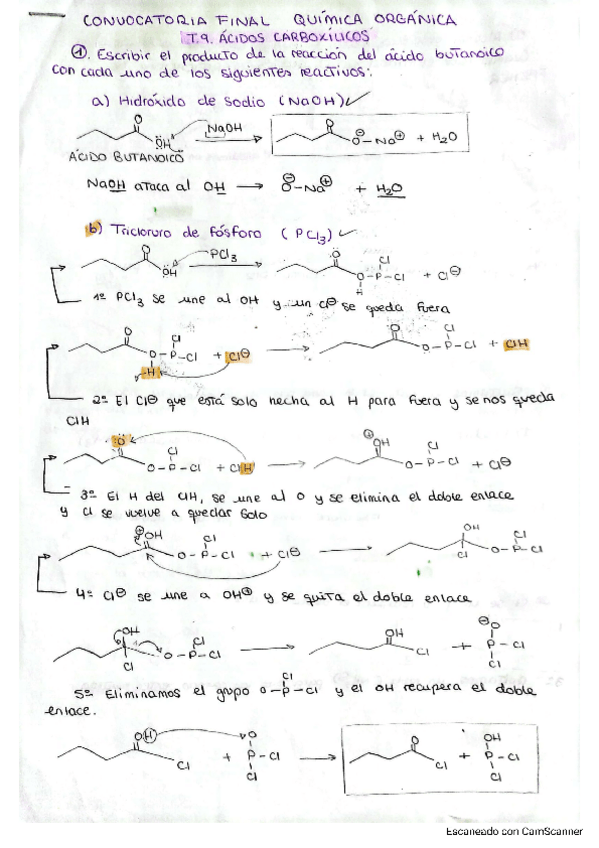 CONVOCATORIA FINAL QUÍMICA ORGÁNICA
T.9. ÁCIDOS CARBOXÍLICOS
① Escribir el producto de la reacción del ácido butanoico
con cada uno de los siguientes reactivos:
a) Hidróxido de Sodio (NaOH) ✓
O
ÖH NaOH → O⊖ – Na⊕ + H₂O
ÁCIDO BUTANOICO
NaOH ataca al OH → O⊖–Na⊕ + H₂O
b) Tricloruro de fósforo (PCl₃) ✓
O
ÖH PCl₃ → O – P – Cl + Cl⊖
Cl
H
1º PCl₃ se une al OH y un Cl⊖ se queda fuera
O Cl
O – P – Cl + Cl⊖ → O – P – Cl + ClH
H
2º El Cl⊖ que está solo hecha al H para fuera y se nos queda
ClH
O Cl ⊕OH Cl
O – P – Cl + ClH → O – P – Cl + Cl⊖
3º El H del ClH, se une al O y se elimina el doble enlace
y Cl se vuelve a quedar solo
⊕OH Cl OH Cl
O – P – Cl + Cl⊖ → Cl O – P – Cl
4º Cl⊖ se une a OH⊕ y se quita el doble enlace
OH Cl OH ⊖O
O – P – Cl → Cl + P – Cl
Cl Cl
5º Eliminamos el grupo O – P – Cl y el OH recupera el doble
Cl
enlace.
OH O O OH
Cl + P – Cl → Cl + P – Cl
Cl Cl
Escaneado con CamScanner